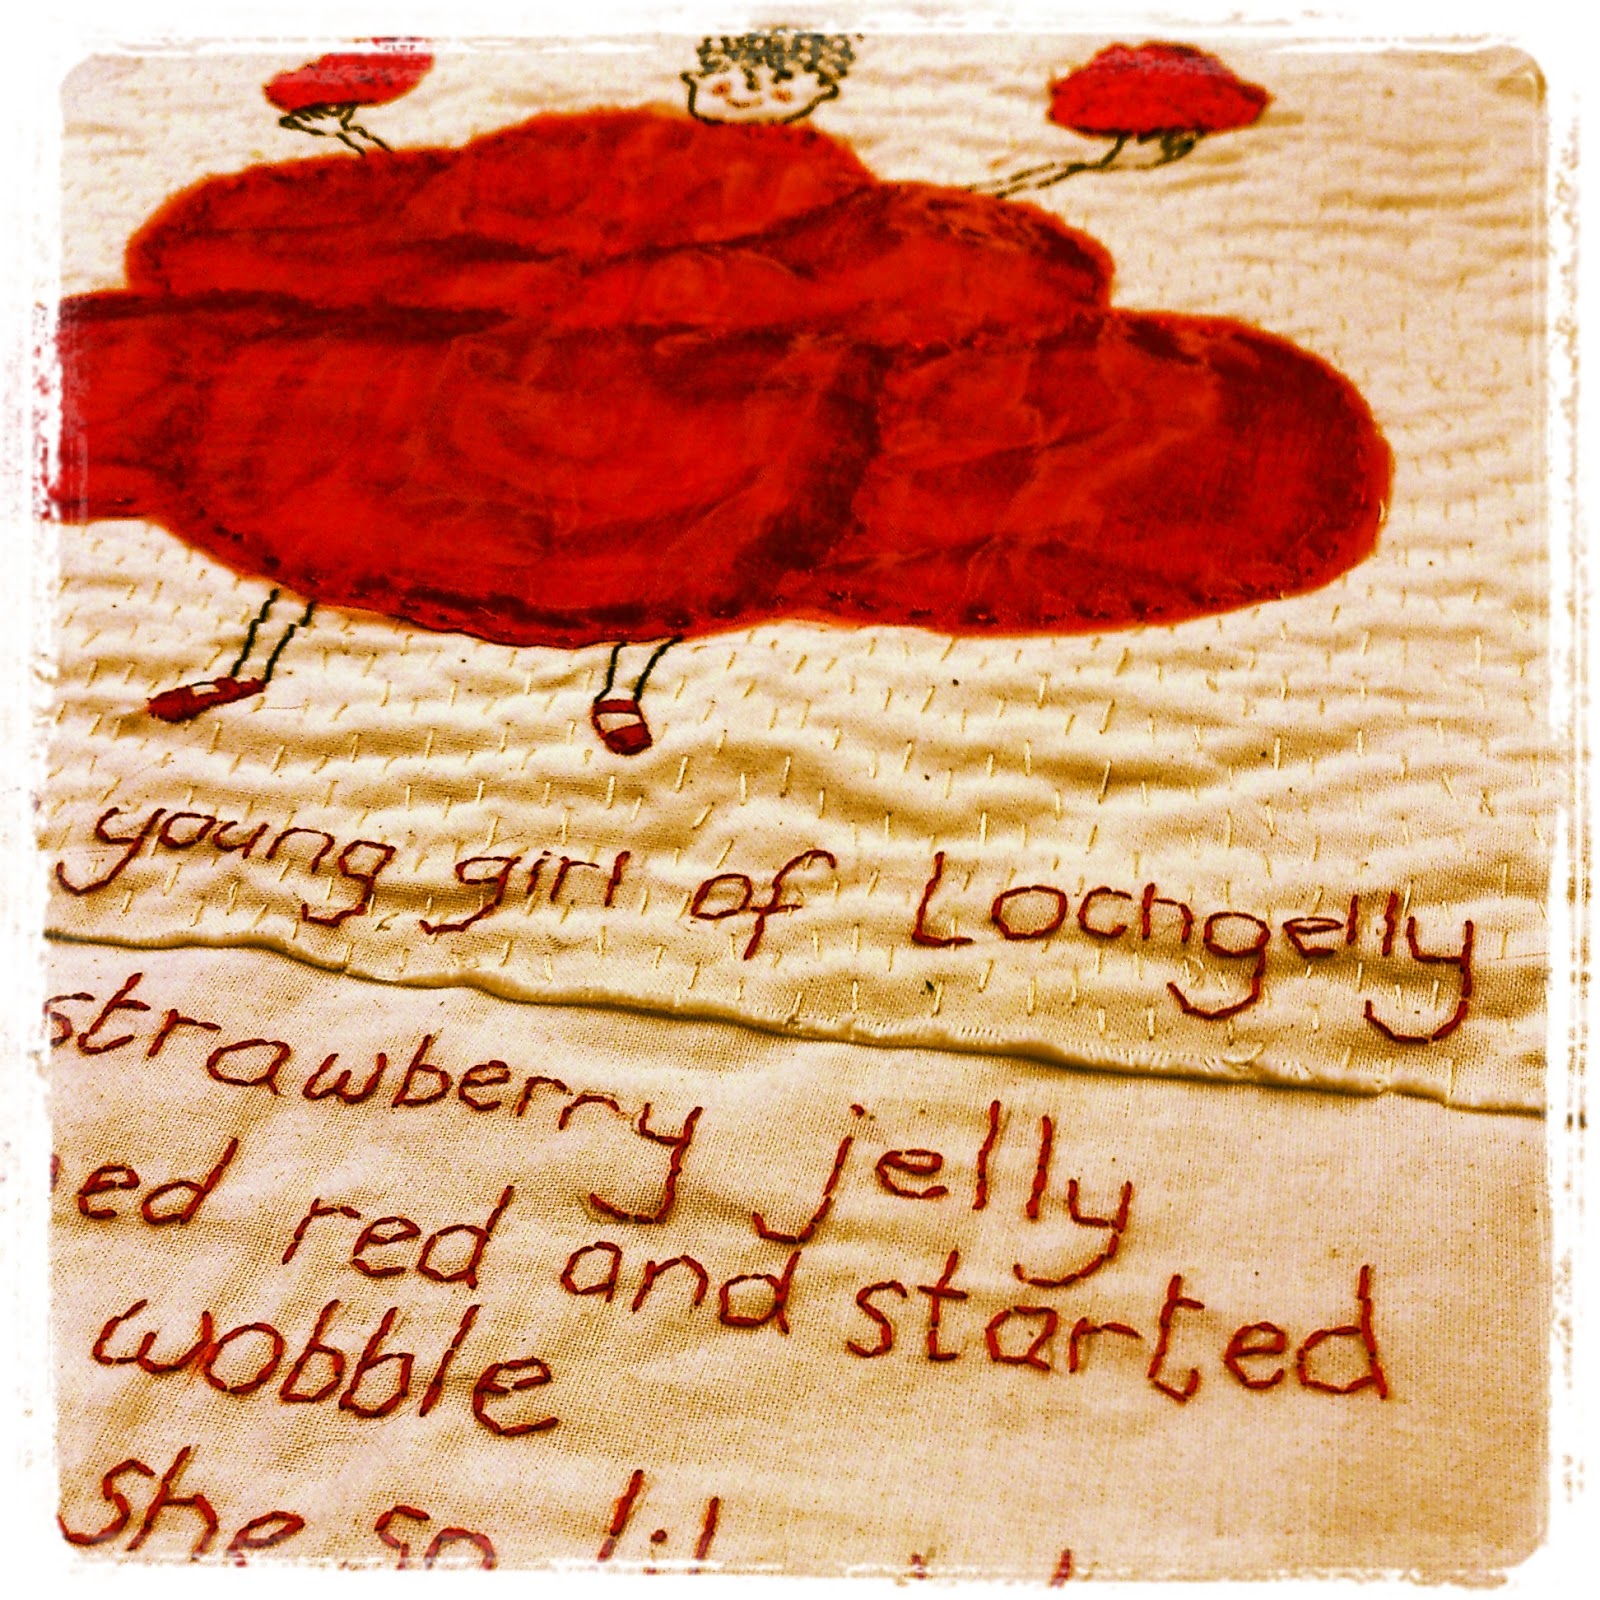 young girl of Lochgelly
strawberry jelly
ed red and started
wobble
she so